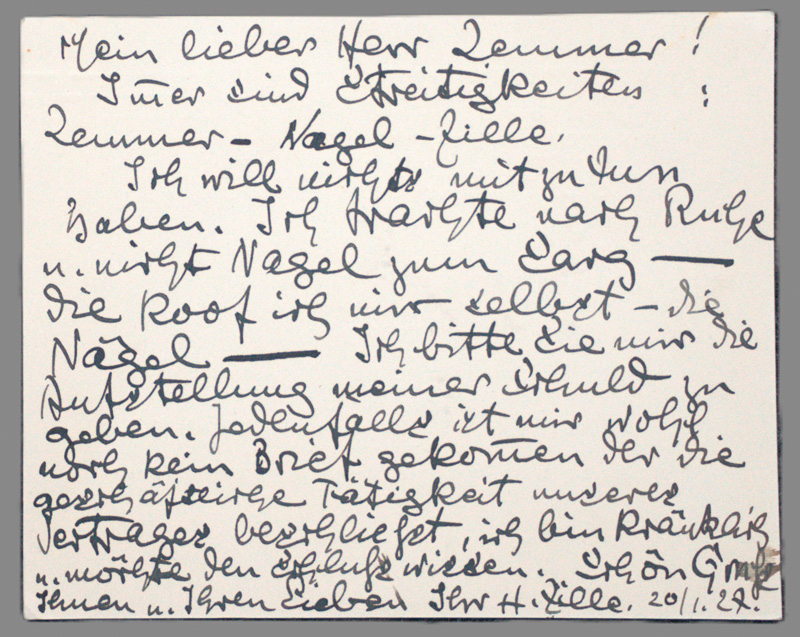 Mein lieber Herr Zemmer!
Im̅er sind Streitigkeiten :
Zemmer – Nagel – Zille.
Ich will nichts mitzutun
haben. Ich trachte nach Ruhe
u. nicht Nagel zum Sarg —
die koof ich mir selbst – die
Nägel — Ich bitte Sie mir die
Aufstellung meiner Schuld zu
geben. Jedenfalls ist mir wohl
noch kein Brief gekom̅en der die
geschäftliche Tätigkeit unseres
Vertrages beschließt, ich bin kränklich
u. möchte den Schluß wissen. Schön Gruß
Ihnen u. Ihren Lieben Ihr H. Zille. 20/1. 27.